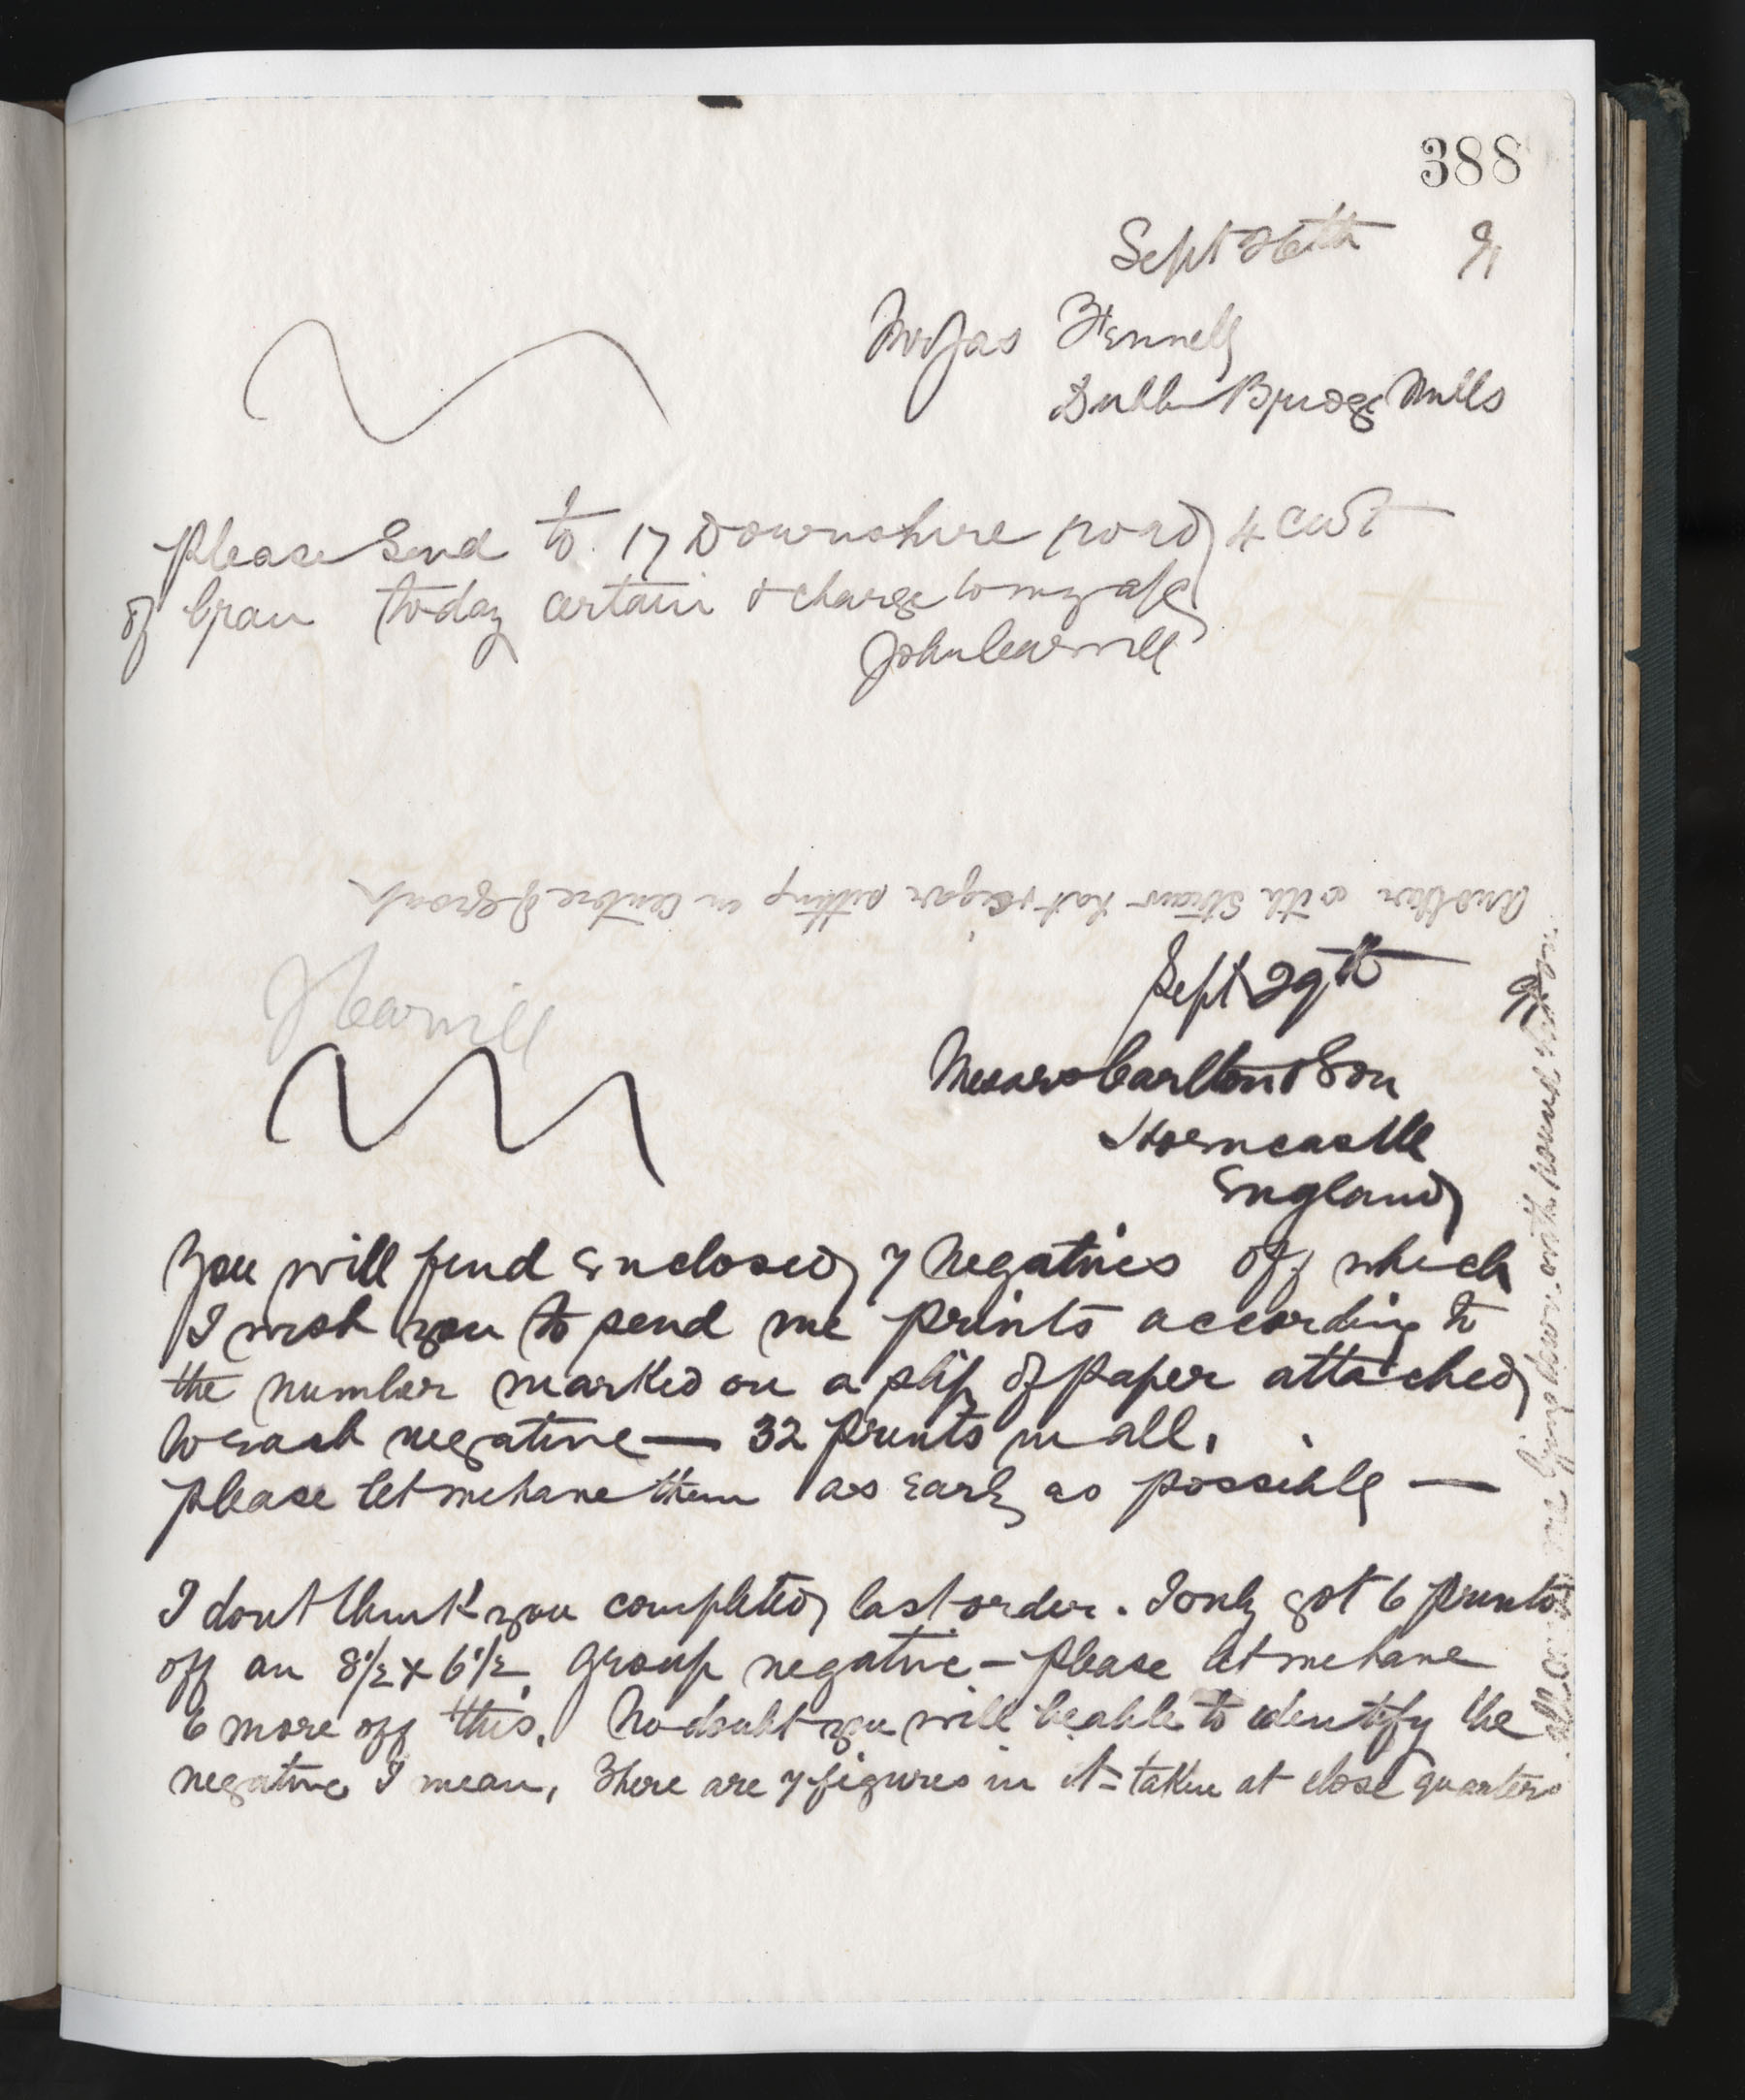 388
Sept 26th 91
Mr Jas Fennell
Dublin Bridge Mills
Please Send to 17 Downshire road 4 cwt
of bran today certain & charge to my a/c
John Cearnill
Sept 29th 91
Messrs Carlton & Son
Horncastle
England
You will find enclosed 7 Negatives off which
I wish you to send me prints according to
the number marked on a slip of paper attached
to each negative — 32 prints in all.
Please let me have them as early as possible —
I dont think you completed last order. I only got 6 prints
off an 8½ x 6½ group negative - please let me have
6 more off this. No doubt you will be able to identify the
negative I mean, There are 7 figures in it = taken at close quarters
all on one lying down with hound
Another with straw hat & cigar sitting in centre of group